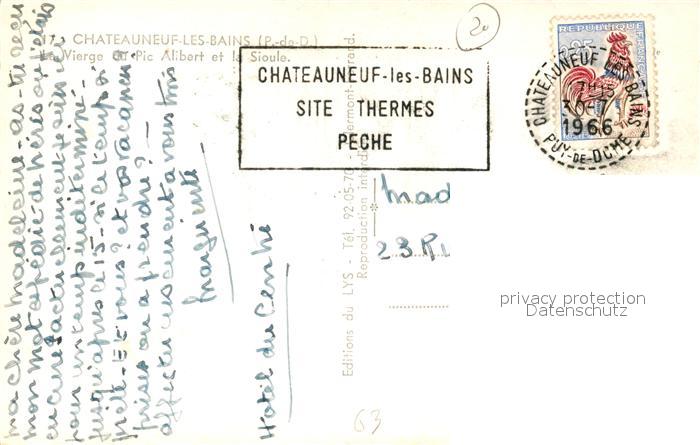 17. CHATEAUNEUF-LES-BAINS (P.-de-D.)
La Vierge du Pic Alibert et la Sioule.
20
CHATEAUNEUF-les-BAINS
SITE THERMES
PECHE
REPUBLIQUE
FRANÇAISE
0,25
CHATEAUNEUF-LES-BAINS
7H15
30-7
1966
PUY-DE-DOME
ma chère madeleine - as-tu reçu
mon mot expédié de
en cure actuellement
pour un temps indéterminé -
jusqu'après le 15 - si le temps s'y
prête - Et vous? et vos vacances
prises ou à prendre? -
affectueusement à vous trois
Marguerite
Hotel du Centre
Editions du LYS - Tél. 92-05-70 - Clermont-Ferrand.
Reproduction interdite
Mad
23 R
privacy protection
Datenschutz
63